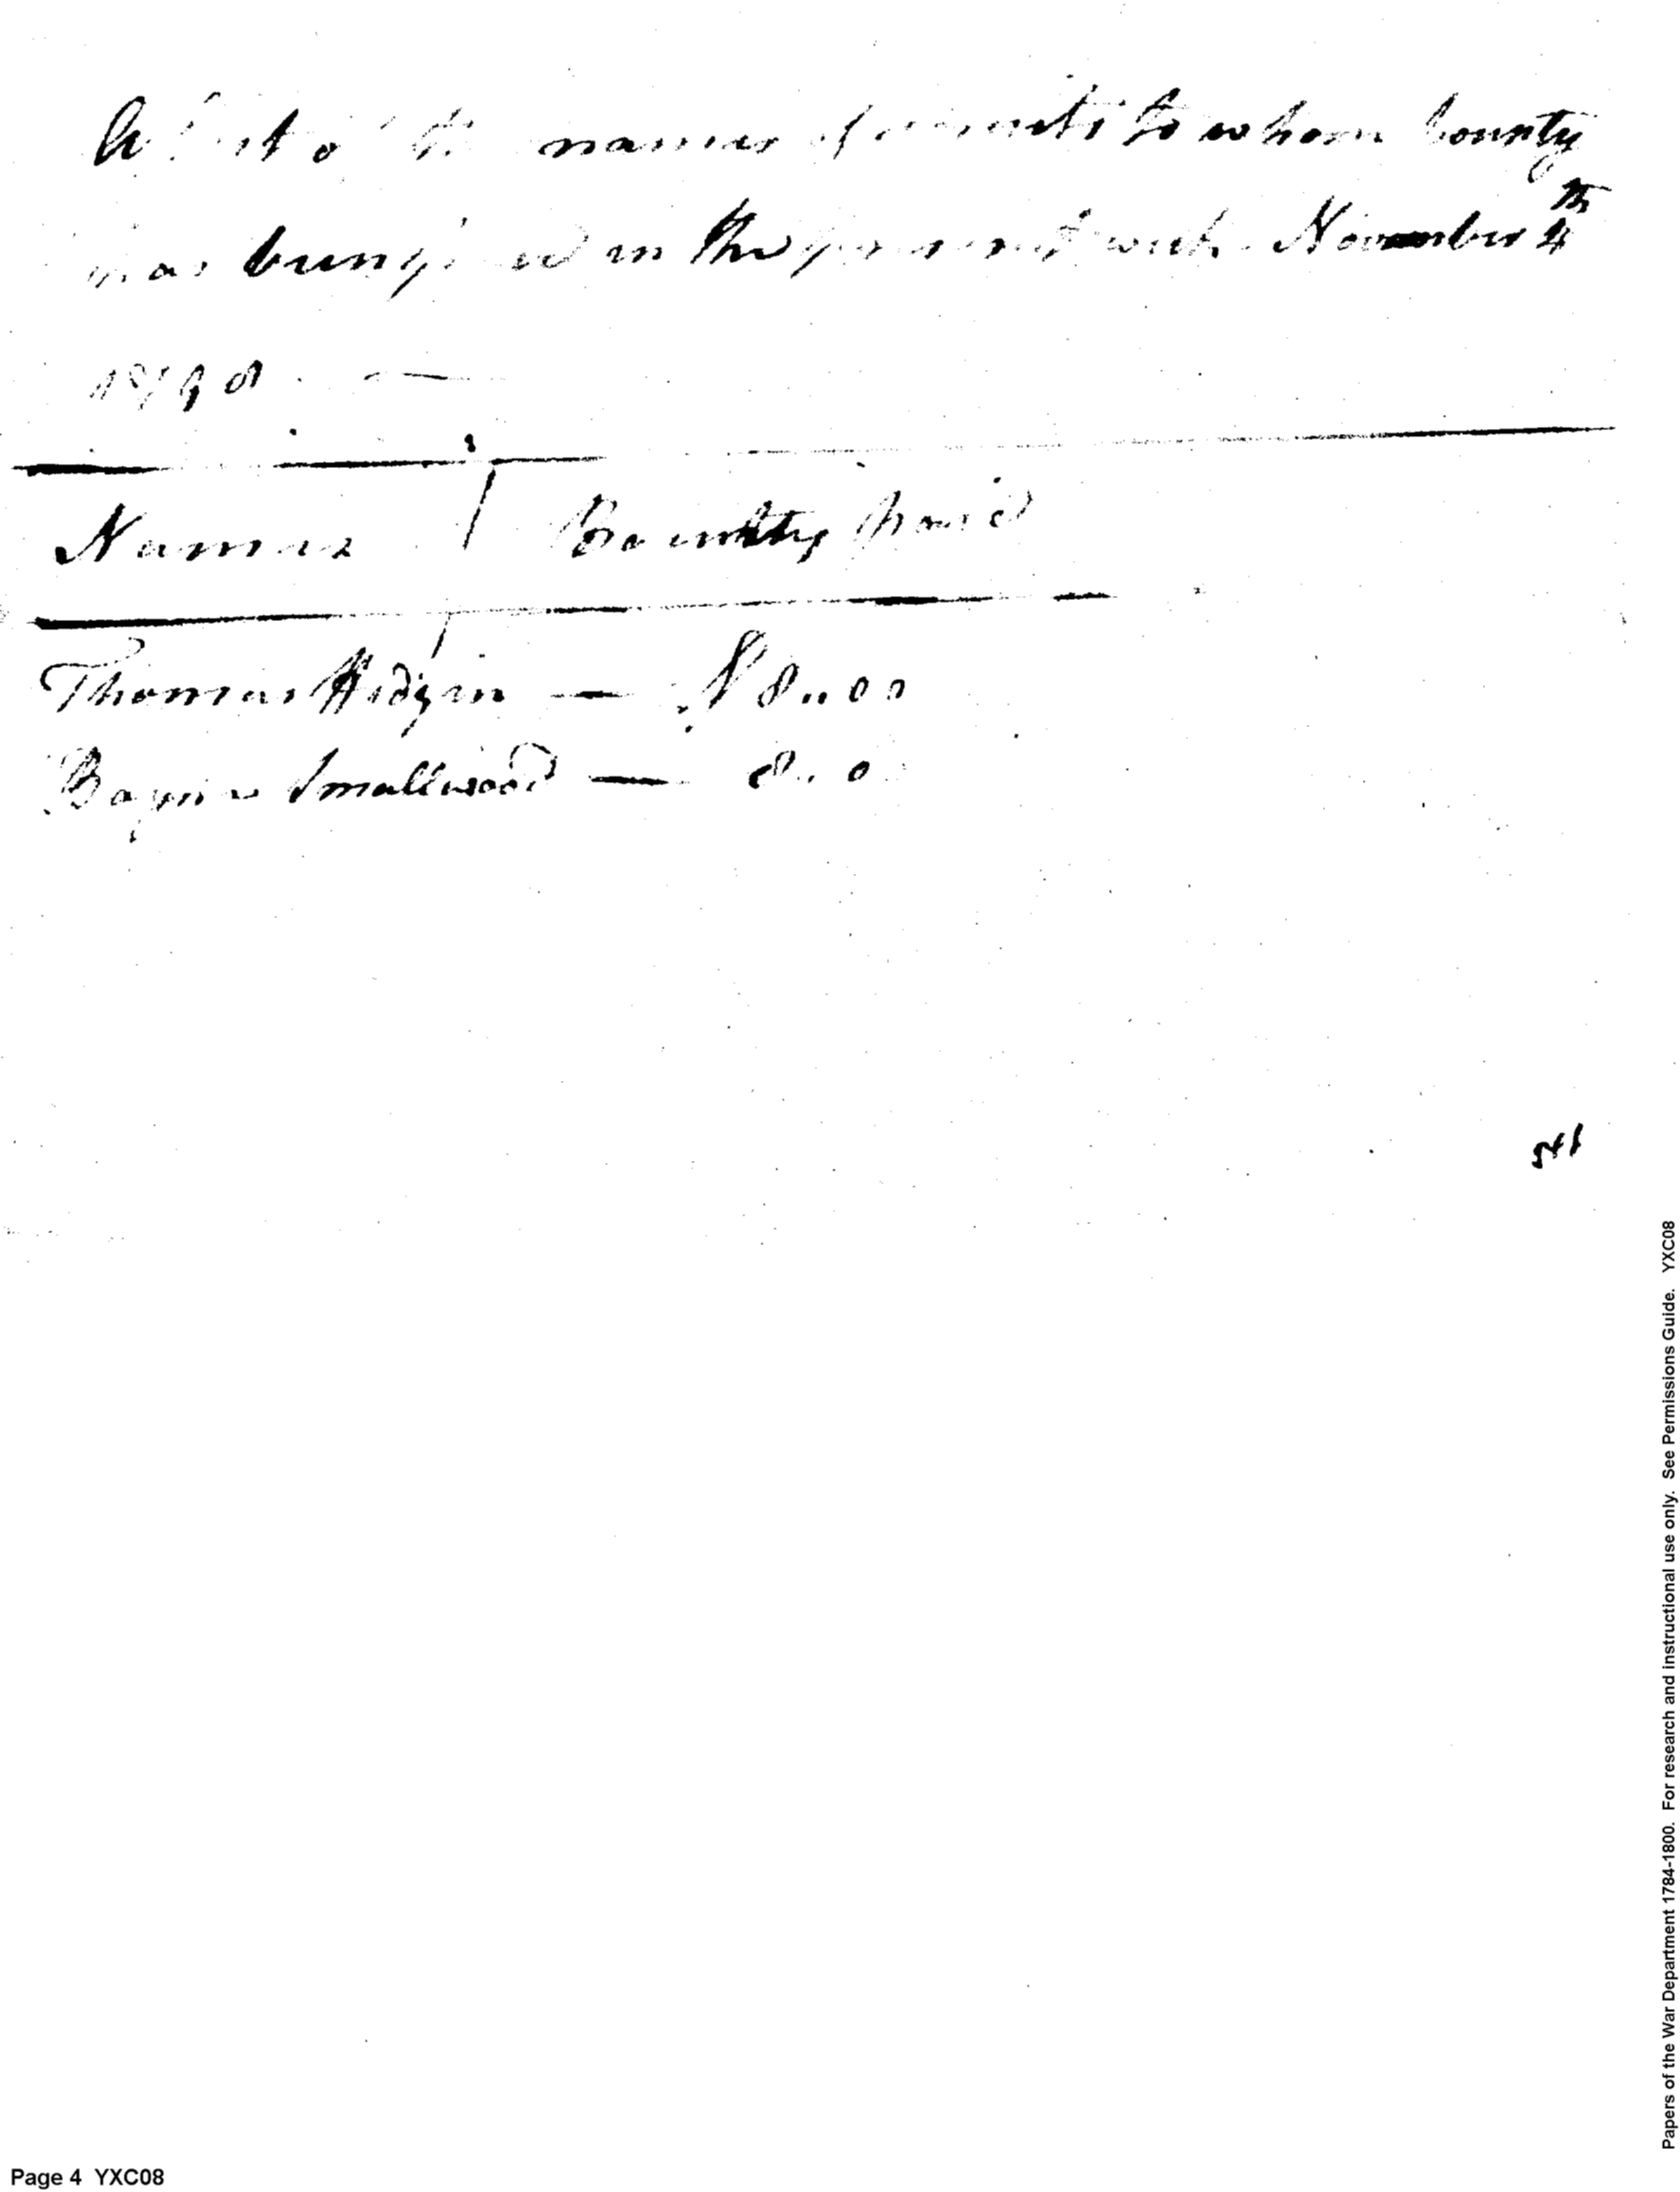 A List of the names of recruits to whom bounty
has been paid in the present week November 4th
1798. —
Names Bounty paid
Thomas Hodgin — $ 8..00
Smallwood — 8..0
Papers of the War Department 1784-1800. For research and instructional use only. See Permissions Guide. YXC08
Page 4 YXC08